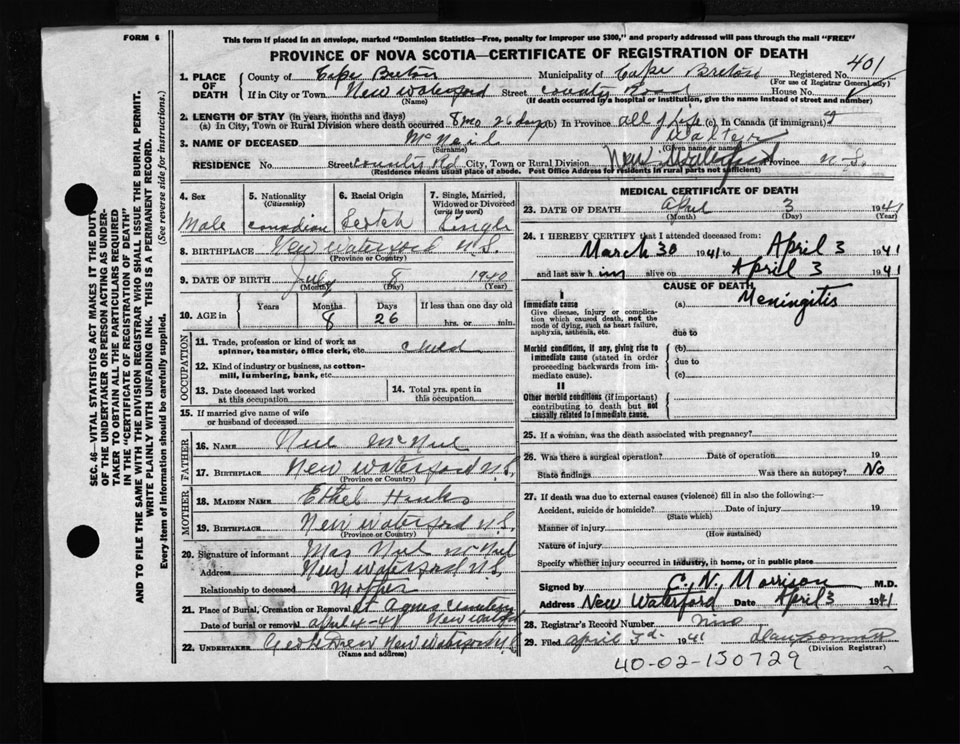 FORM 6
This form if placed in an envelope, marked "Dominion Statistics—Free, penalty for improper use $300," and properly addressed will pass through the mail "FREE"
PROVINCE OF NOVA SCOTIA—CERTIFICATE OF REGISTRATION OF DEATH
SEC. 46—VITAL STATISTICS ACT MAKES IT THE DUTY OF THE UNDERTAKER OR PERSON ACTING AS UNDERTAKER TO OBTAIN ALL THE PARTICULARS REQUIRED IN THE "CERTIFICATE OF REGISTRATION OF DEATH"
AND TO FILE THE SAME WITH THE DIVISION REGISTRAR WHO SHALL ISSUE THE BURIAL PERMIT.
WRITE PLAINLY WITH UNFADING INK. THIS IS A PERMANENT RECORD.
Every item of information should be carefully supplied. (See reverse side for instructions.)
1. PLACE OF DEATH County of Cape Breton Municipality of Cape Breton Registered No. 401
(For use of Registrar General only)
If in City or Town New Waterford Street County Road House No.
(Name) (If death occurred in a hospital or institution, give the name instead of street and number)
2. LENGTH OF STAY (in years, months and days)
(a) In City, Town or Rural Division where death occurred 8 mo 26 days (b) In Province all of life (c) In Canada (if immigrant)
3. NAME OF DECEASED McNeil Walter
(Surname) (Given name or names)
RESIDENCE No. Street County Rd City, Town or Rural Division New Waterford Province N.S.
(Residence means usual place of abode. Post Office Address for residents in rural parts not sufficient)
4. Sex Male
5. Nationality (Citizenship) Canadian
6. Racial Origin Scotch
7. Single, Married, Widowed or Divorced (write the word) Single
8. BIRTHPLACE New Waterford N.S.
(Province or Country)
9. DATE OF BIRTH July 8 1940
(Month) (Day) (Year)
10. AGE in Years Months 8 Days 26 If less than one day old hrs. or min.
OCCUPATION
11. Trade, profession or kind of work as spinner, teamster, office clerk, etc. child
12. Kind of industry or business, as cotton-mill, lumbering, bank, etc.
13. Date deceased last worked at this occupation
14. Total yrs. spent in this occupation
15. If married give name of wife or husband of deceased
FATHER
16. NAME Neil McNeil
17. BIRTHPLACE New Waterford N.S.
(Province or Country)
MOTHER
18. MAIDEN NAME Ethel Hinks
19. BIRTHPLACE New Waterford N.S.
(Province or Country)
20. Signature of informant Mrs Neil McNeil
Address New Waterford N.S.
Relationship to deceased Mother
21. Place of Burial, Cremation or Removal St. Agnes Cemetery
Date of burial or removal April 4-41 New Waterford
22. UNDERTAKER New Waterford N.S.
(Name and address)
MEDICAL CERTIFICATE OF DEATH
23. DATE OF DEATH April 3 1941
(Month) (Day) (Year)
24. I HEREBY CERTIFY that I attended deceased from:
March 30 1941 to April 3 1941
and last saw him alive on April 3 1941
CAUSE OF DEATH
I
Immediate cause (a) Meningitis
Give disease, injury or complication which caused death, not the mode of dying, such as heart failure, asphyxia, asthenia, etc.
due to
Morbid conditions, if any, giving rise to immediate cause (stated in order proceeding backwards from immediate cause).
(b)
due to
(c)
II
Other morbid conditions (if important) contributing to death but not causally related to immediate cause.
25. If a woman, was the death associated with pregnancy?
26. Was there a surgical operation? Date of operation 19
State findings Was there an autopsy? No
27. If death was due to external causes (violence) fill in also the following:—
Accident, suicide or homicide? Date of injury 19
(State which)
Manner of injury
(How sustained)
Nature of injury
Specify whether injury occurred in industry, in home, or in public place
Signed by C. N. Morrison M.D.
Address New Waterford Date April 3 1941
28. Registrar's Record Number
29. Filed April 3rd 1941
(Division Registrar)
40-02-150729